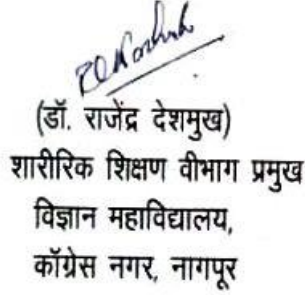 (डॉ. राजेंद्र देशमुख)
शारीरिक शिक्षण वीभाग प्रमुख
विज्ञान महाविद्यालय,
कॉंग्रेस नगर, नागपूर